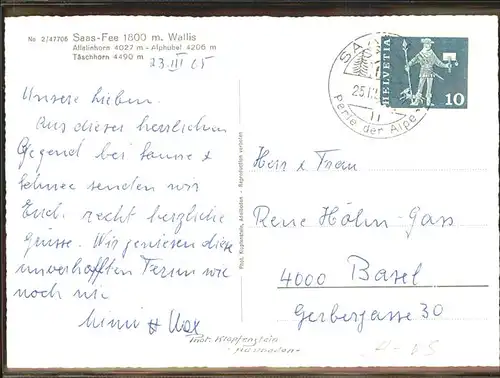 No 2/47706 Saas-Fee 1800 m. Wallis
Allalinhorn 4027 m - Alphubel 4206 m
Täschhorn 4490 m
23.III 65
Unsere lieben.
Aus dieser herrlichen
Gegend bei Sonne &
Schnee senden wir
Euch recht herzliche
Grüsse. Wir geniesen diese
unverhofften Ferien wie
noch nie
Mimi & Max
Phot. Klopfenstein, Adelboden - Reproduction verboten
HELVETIA
10
Perle der Alpen
Herr & Frau
Rene Höhn-Gass
4000 Basel
Gerbergasse 30
Phot. Klopfenstein
- Adelboden -